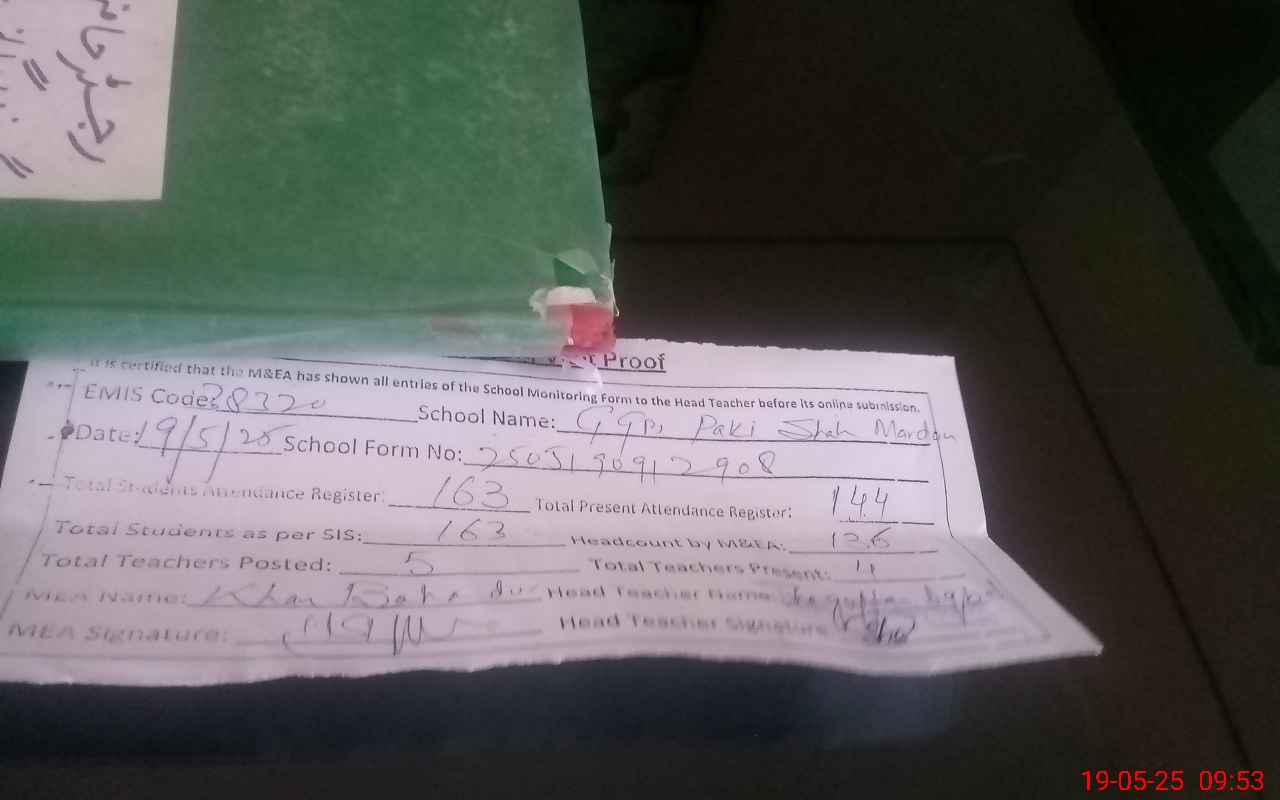 رجسٹر حاضری
Visit Proof
It is certified that the M&EA has shown all entries of the School Monitoring Form to the Head Teacher before its online submission.
EMIS Code: 28320 School Name: GGPS Paki Shah Mardan
Date: 19/5/25 School Form No: 2505190912908
Total Students Attendance Register: 163 Total Present Attendance Register: 144
Total Students as per SIS: 163 Headcount by M&EA: 136
Total Teachers Posted: 5 Total Teachers Present: 4
MEA Name: Khan Bahadur Head Teacher Name:
MEA Signature: Head Teacher Signature
19-05-25 09:53